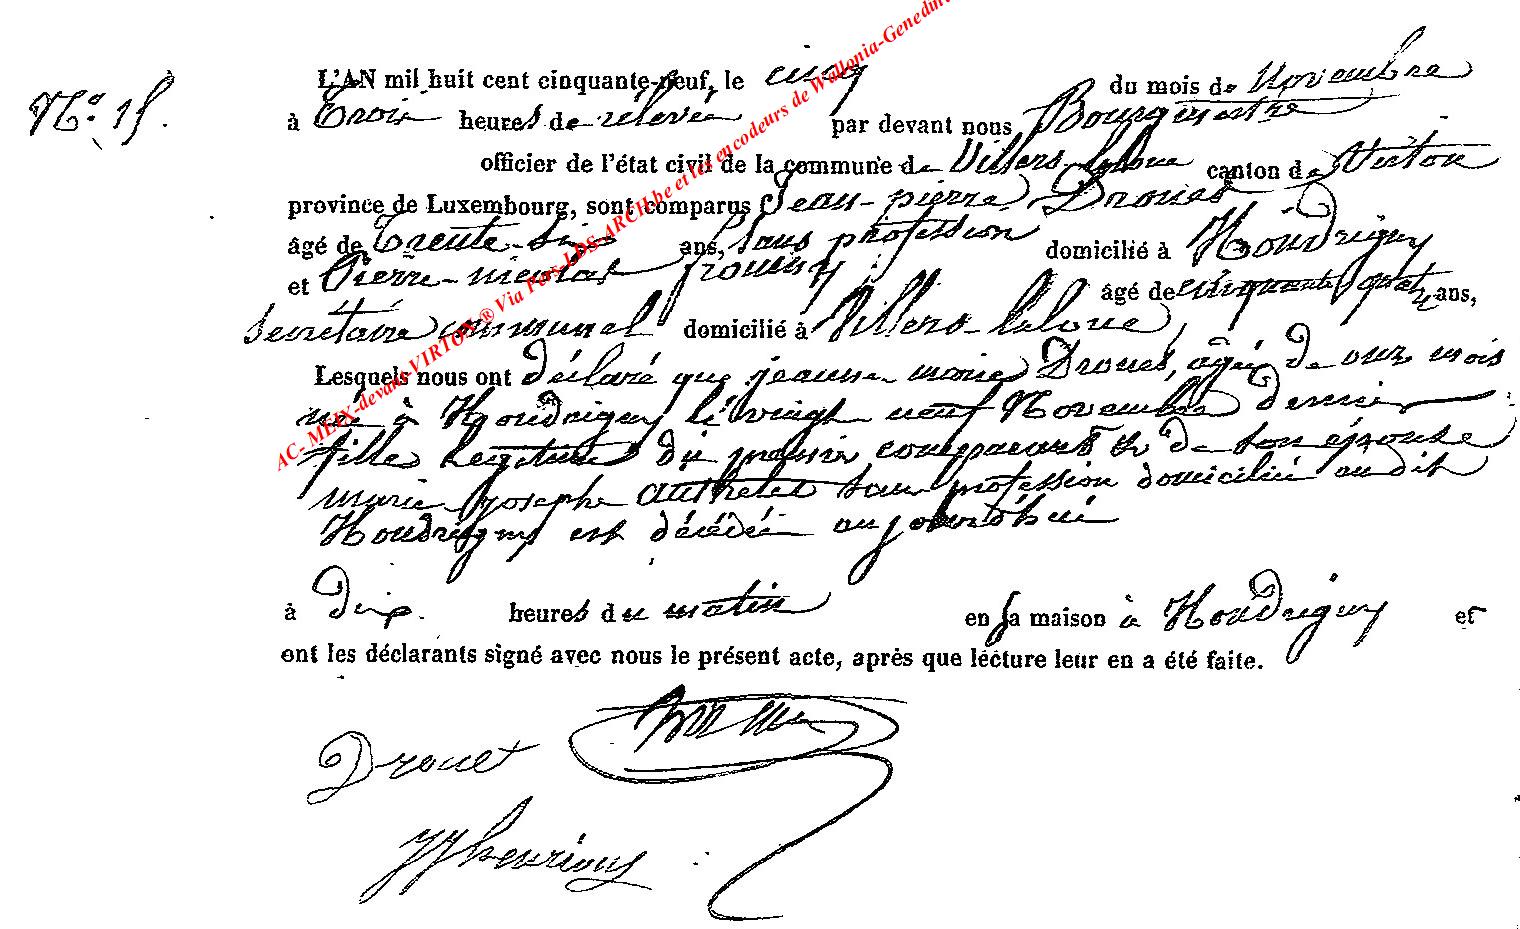 N.o 15.
L'AN mil huit cent cinquante-neuf, le cinq du mois de Novembre
à trois heures de relevée par devant nous Bourgmestre
officier de l'état civil de la commune de Villers-laloue canton de Virton
province de Luxembourg, sont comparus Jean-pierre Drouet
âgé de trente-six ans, sans profession domicilié à Houdrigny
et Pierre-nicolas âgé de cinquante quatre ans,
secrétaire communal domicilié à Villers-laloue,
Lesquels nous ont déclaré que jeanne marie Drouet, âgée de onze mois
née à Houdrigny le vingt neuf Novembre dernier
fille legitime du premier comparant & de son épouse
marie josephe authelet sans profession domiciliée au dit
Houdrigny est décédée aujourd'hui
à dix heures du matin en sa maison à Houdrigny et
ont les déclarants signé avec nous le présent acte, après que lecture leur en a été faite.
Drouet
AC- MEIX-devant-VIRTON ® Via Pars LDS-ARCH.be et les encodeurs de Wallonia-Genedin